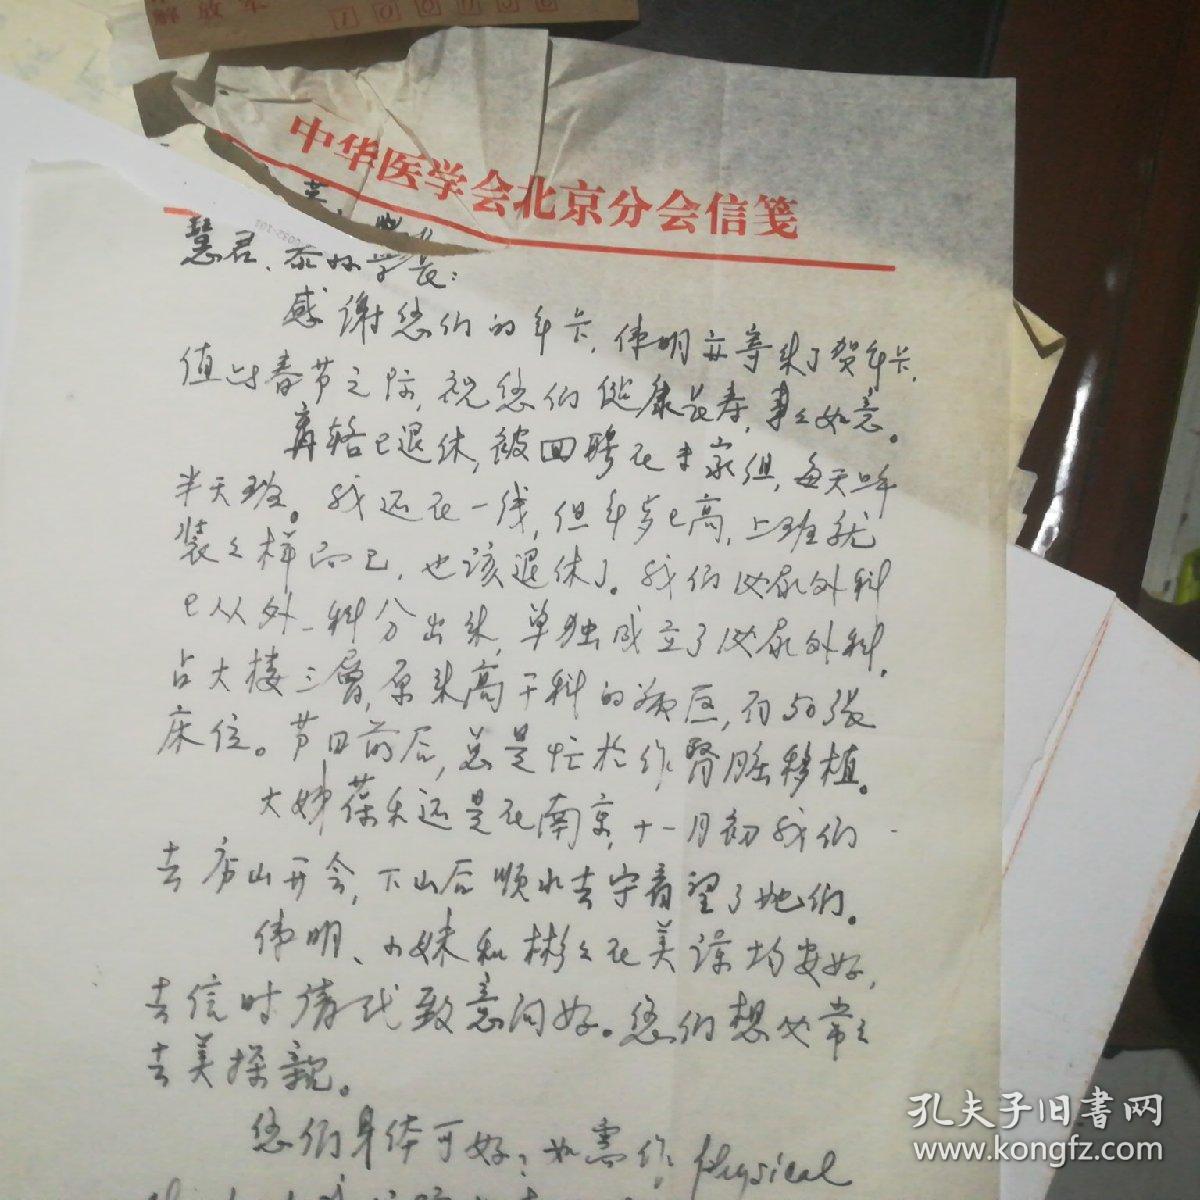 解放军
100036
中华医学会北京分会信笺
慧君、泰好学长：
感谢您们的年卡，伟明亦寄来了贺年卡，
值此春节之际，祝您们健康长寿，事々如意。
再辂已退休，被回聘在专家组，每天上午
半天班。我还在一线，但年岁已高，上班就
装々样而已，也该退休了。我们泌尿外科
已从外一科分出来，单独成立了泌尿外科，
占大楼三层，原来高干科的病区，有50张
床位。节日前后，总是忙于作肾脏移植。
大姊葆禾还是在南京，十一月初我们
去庐山开会，下山后顺水去宁看望了她们。
伟明、小妹和彬々在美谅均安好，
去信时请代致意问好。您们想必常々
去美探亲。
您们身体可好？如需作 Physical
孔夫子旧书网
www.kongfz.com